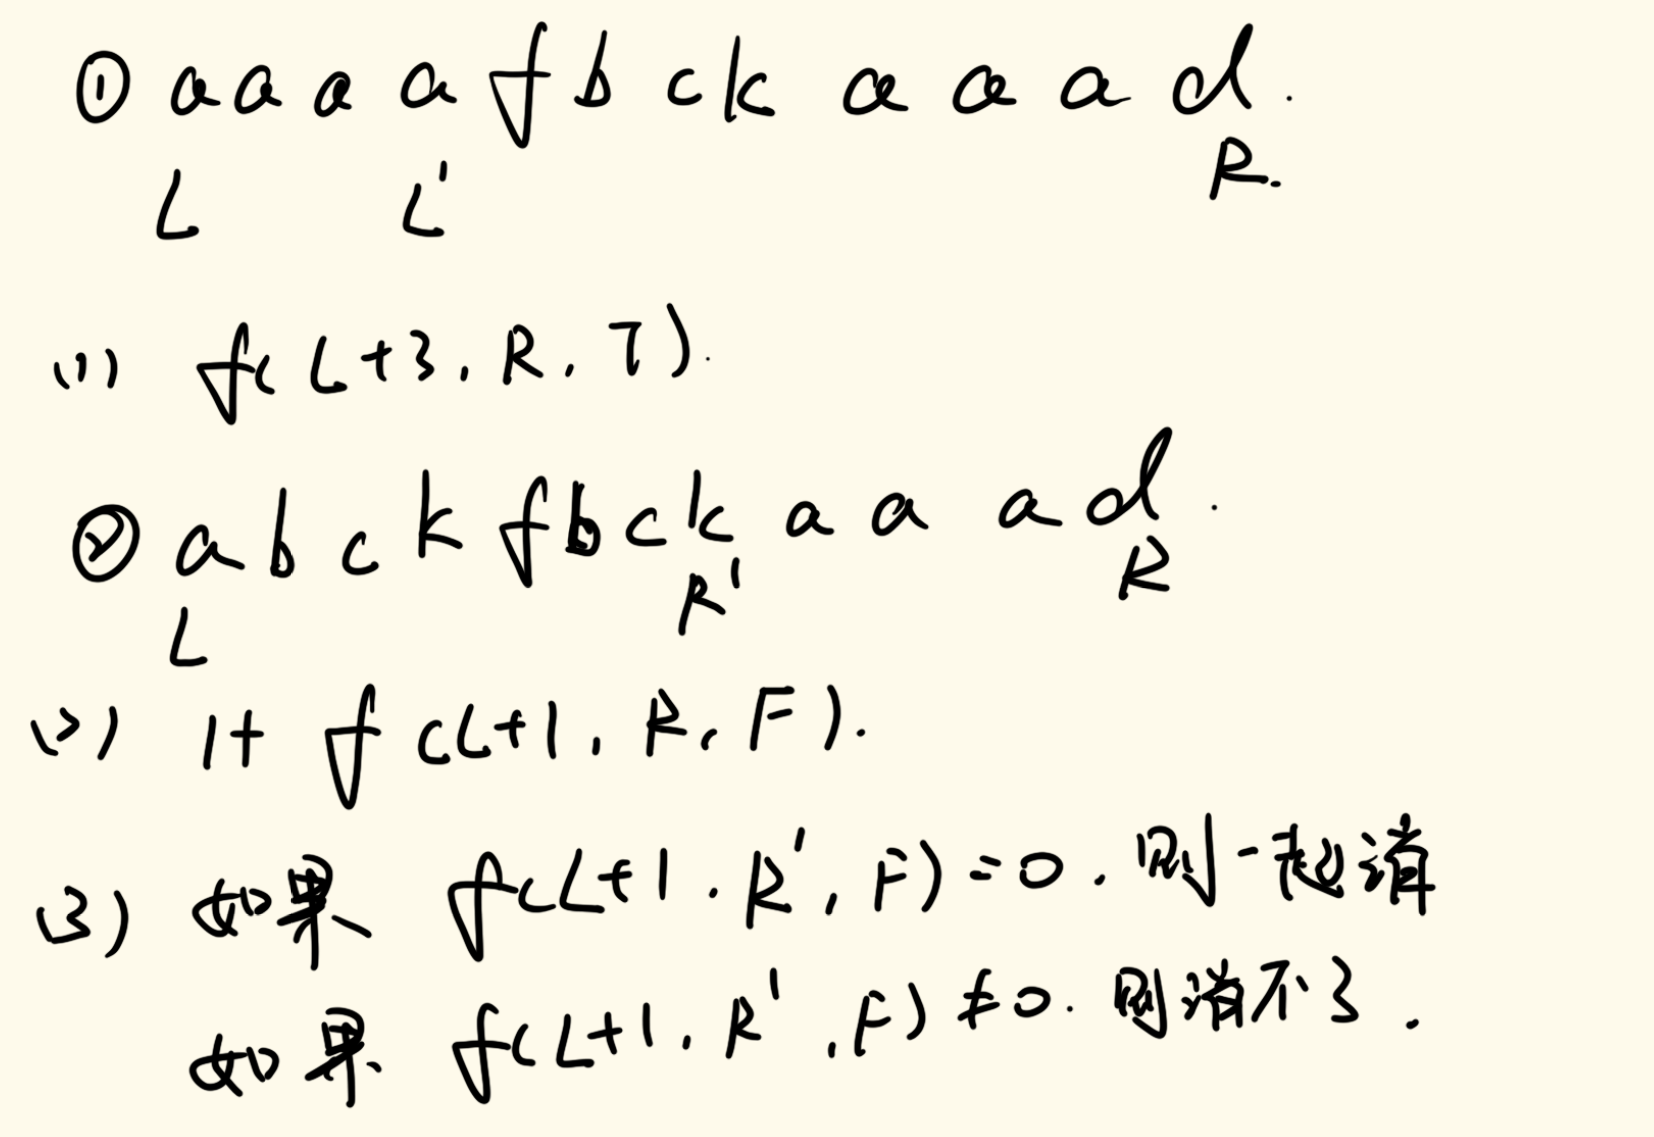 ① a a a a f b c k a a a d.
L L' R.
(1) f(L+3, R, T).
② a b c k f b c k a a a d.
L R' R
(2) 1+ f(L+1, R, F).
(3) 如果 f(L+1, R', F)=0. 则一起消
如果 f(L+1, R', F)≠0. 则消不了.